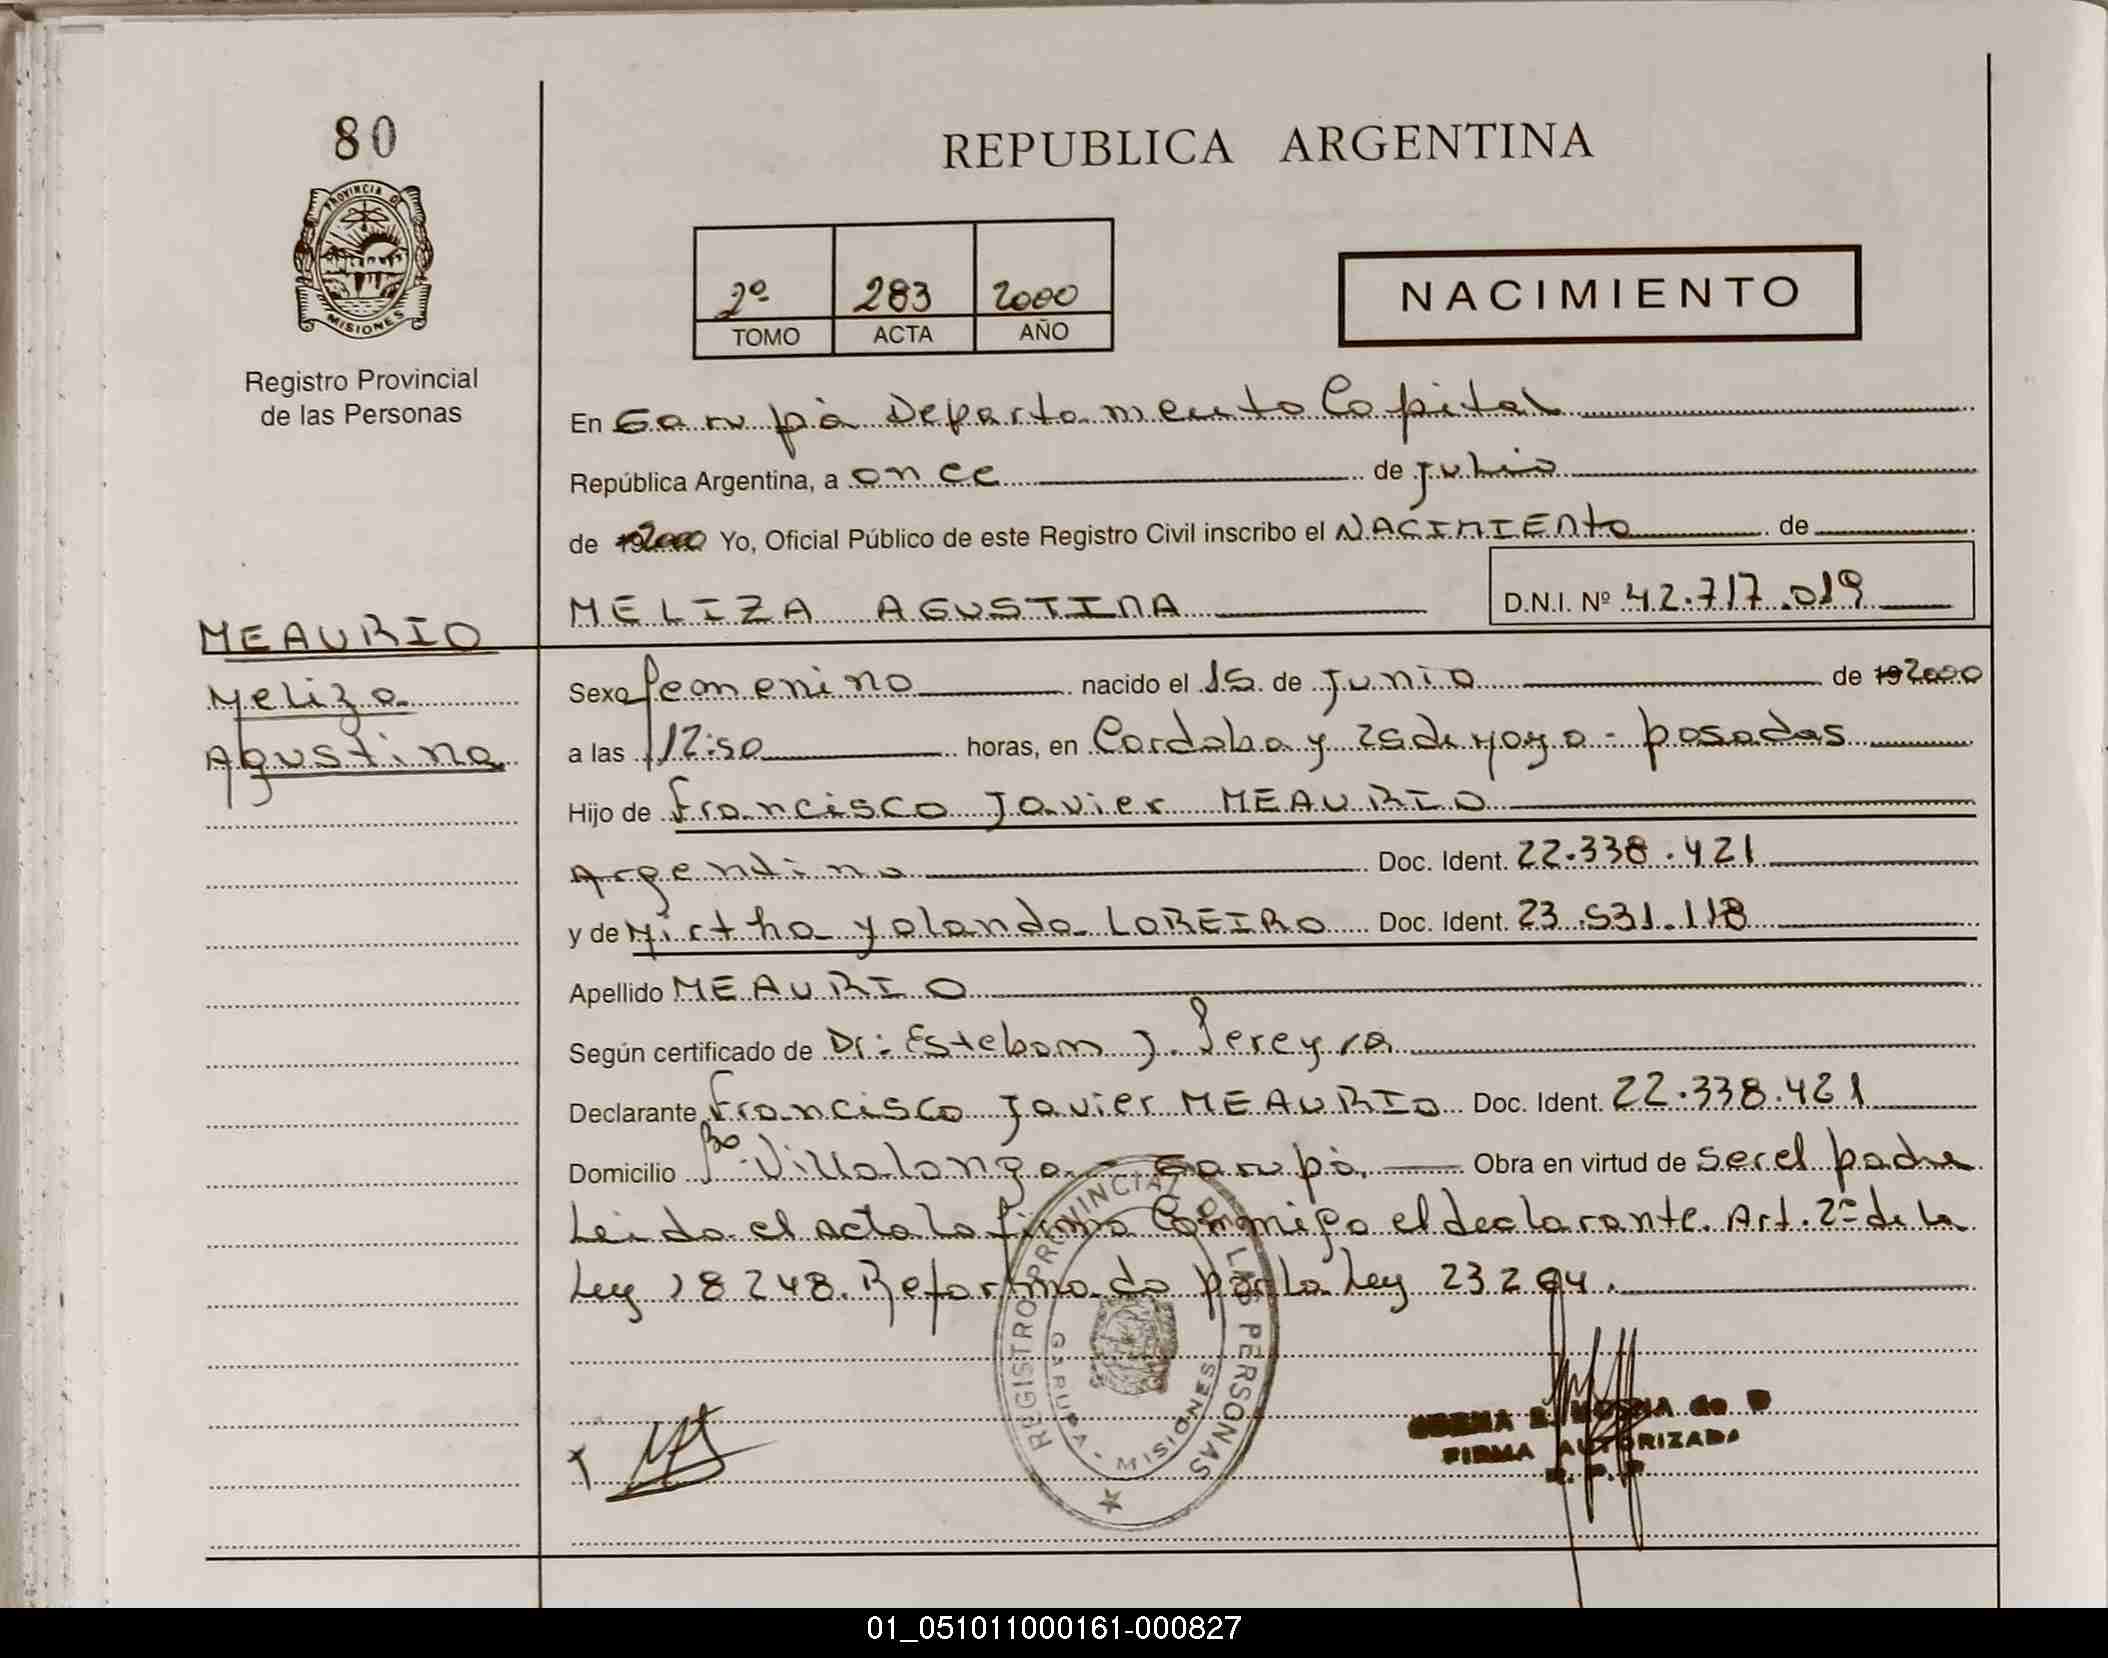 80
REPUBLICA ARGENTINA
PROVINCIA DE
MISIONES
Registro Provincial
de las Personas
2º 283 2000
TOMO ACTA AÑO
NACIMIENTO
En Garupà Departamento Capital
República Argentina, a once de julio
de 192000 Yo, Oficial Público de este Registro Civil inscribo el NACIMIENto de
MELIZA AGUSTINA D.N.I. Nº 42.717.019
MEAURIO
Meliza
Agustina
Sexo femenino nacido el 15 de Junio de 192000
a las 12:50 horas, en Cordoba y 25 de Mayo - posadas
Hijo de Francisco Javier MEAURIO
Argentino Doc. Ident. 22.338.421
y de Mirtha Yolanda LOREIRO Doc. Ident. 23.531.118
Apellido MEAURIO
Según certificado de Dr: Esteban J. Pereyra
Declarante Francisco Javier MEAURIO Doc. Ident. 22.338.421
Domicilio Bº Villalonga - Garupà, Obra en virtud de ser el padre
Leido el acta la firma Conmigo el declarante. Art. 2º de la
Ley 18248. Reformado por la Ley 23264.
REGISTRO PROVINCIAL DE LAS PERSONAS
GARUPA - MISIONES
FIRMA AUTORIZADA
01_051011000161-000827